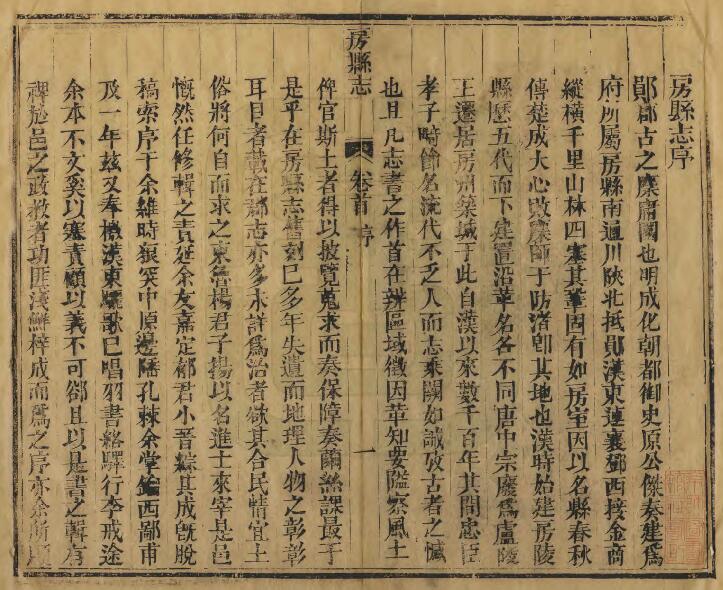 房縣志序
鄖郡古之麇庸國也明成化朝都御史原公傑奏建爲
府所屬房縣南通川陜北抵鄖漢東連襄鄧西接金商
縱橫千里山林四塞其鞏固有如房室因以名縣春秋
傳楚成大心敗麇師于防渚卽其地也漢時始建房陵
縣歷五代而下建置沿革名各不同唐中宗廢爲盧陵
王遷居房州築城于此自漢以來數千百年其間忠臣
孝子時節名流代不乏人而志乘闕如誠攷古者之憾
也且凡志書之作首在辨區域徵因革知要隘察風土
房縣志
卷首 序
一
俾官斯土者得以披覽蒐求而奏保障奏繭絲課最于
是乎在房縣志舊刻已多年失遺而地理人物之彰彰
耳目者載在郡志亦多未詳爲治者欲其合民情宜土
俗將何自而求之東魯楊君子揚以名進士來宰是邑
慨然任修輯之責延余友嘉定郁君小晉綜其成旣脫
稿索序于余維時狼突中原邊陲孔棘余堂鑰西鄙甫
及一年玆又奉檄漢東驪歌已唱羽書絡驛行李戒途
余本不文奚以塞責顧以義不可卻且以是書之輯有
裨於邑之政敎者功匪淺鮮梓成而爲之序亦余所